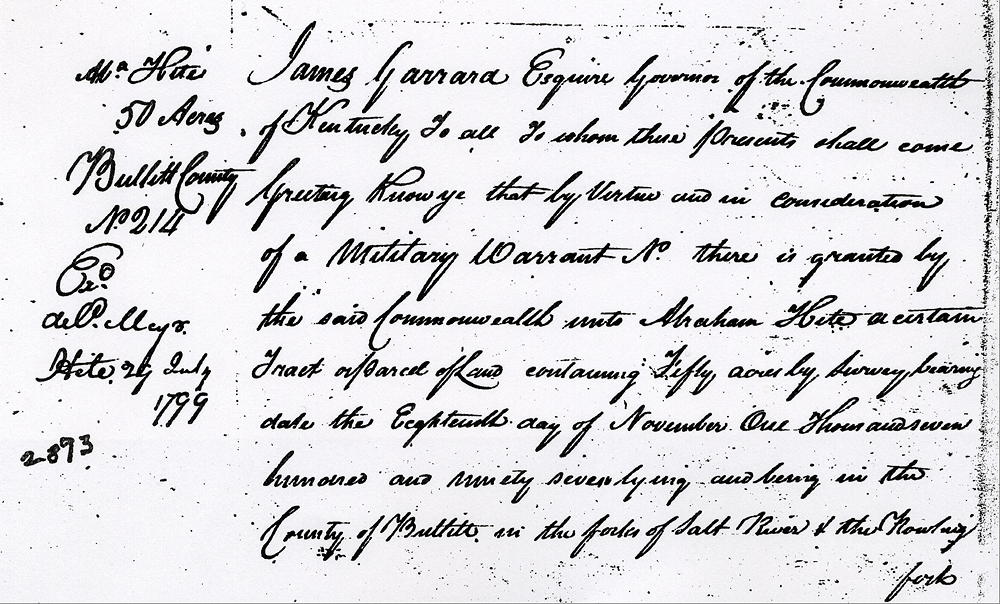 Aba. Hite
50 Acres
Bullitt County
No. 214
Exd.
deld. Mr
Hite 29 July
1799
2893
James Garrard Esquire Governor of the Commonwealth
of Kentucky To all To whom these presents shall come
Greeting Know ye that by Virtue and in consideration
of a Military Warrant No. there is granted by
the said Commonwealth unto Abraham Hite a certain
Tract or parcel of Land containing Fifty acres by survey bearing
date the Eighteenth day of November One Thousand seven
hundred and ninety seven lying and being in the
County of Bullitt in the forks of Salt River & the Rowling
fork